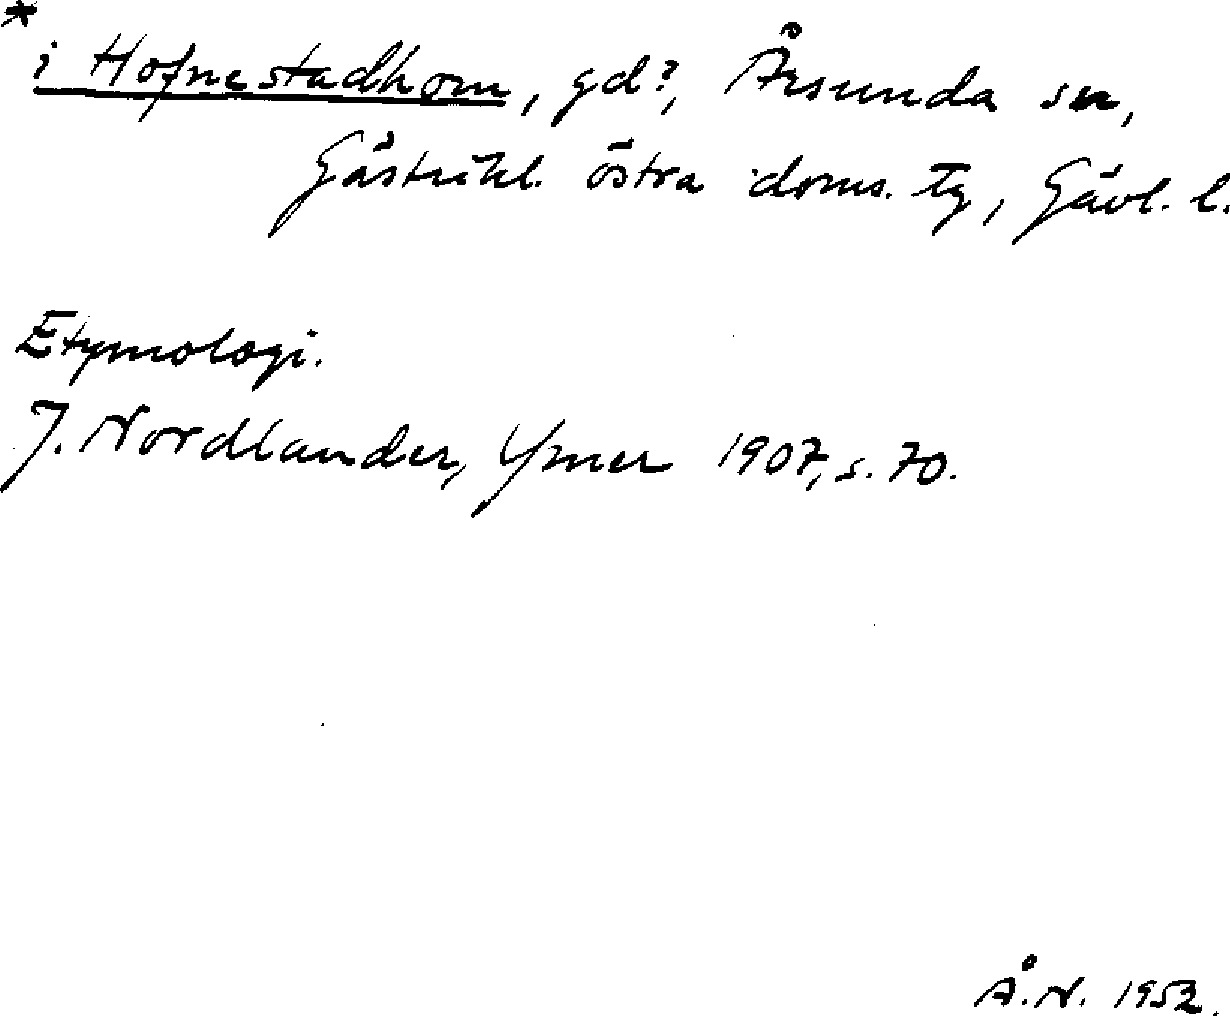 * i Hofnestadhom, gd?, Årsunda sn,
Gästrikl. östra doms. tg, Gävl. l.
Etymologi.
J. Nordlander, Ymer 1907, s. 70.
Å.N. 1952.